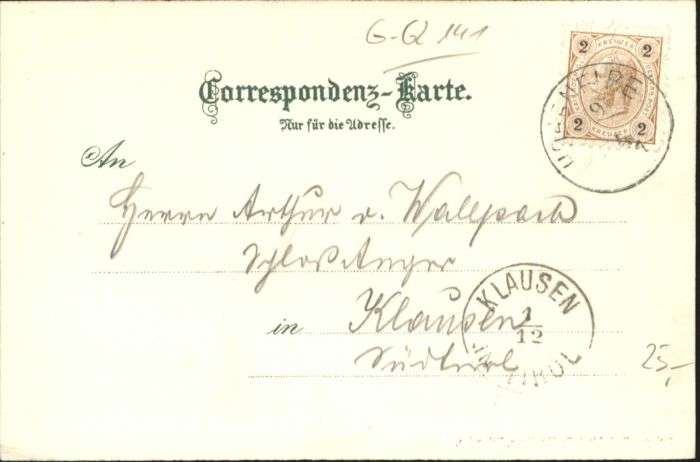 G-Q 141
Correspondenz-Karte.
Nur für die Adresse.
2 KREUZER 2
2 KREUZER 2
An
Herrn Arthur v. Wallpach
Schloß Anger
in Klausen
Südtirol
KLAUSEN
1/12
TIROL
25,-